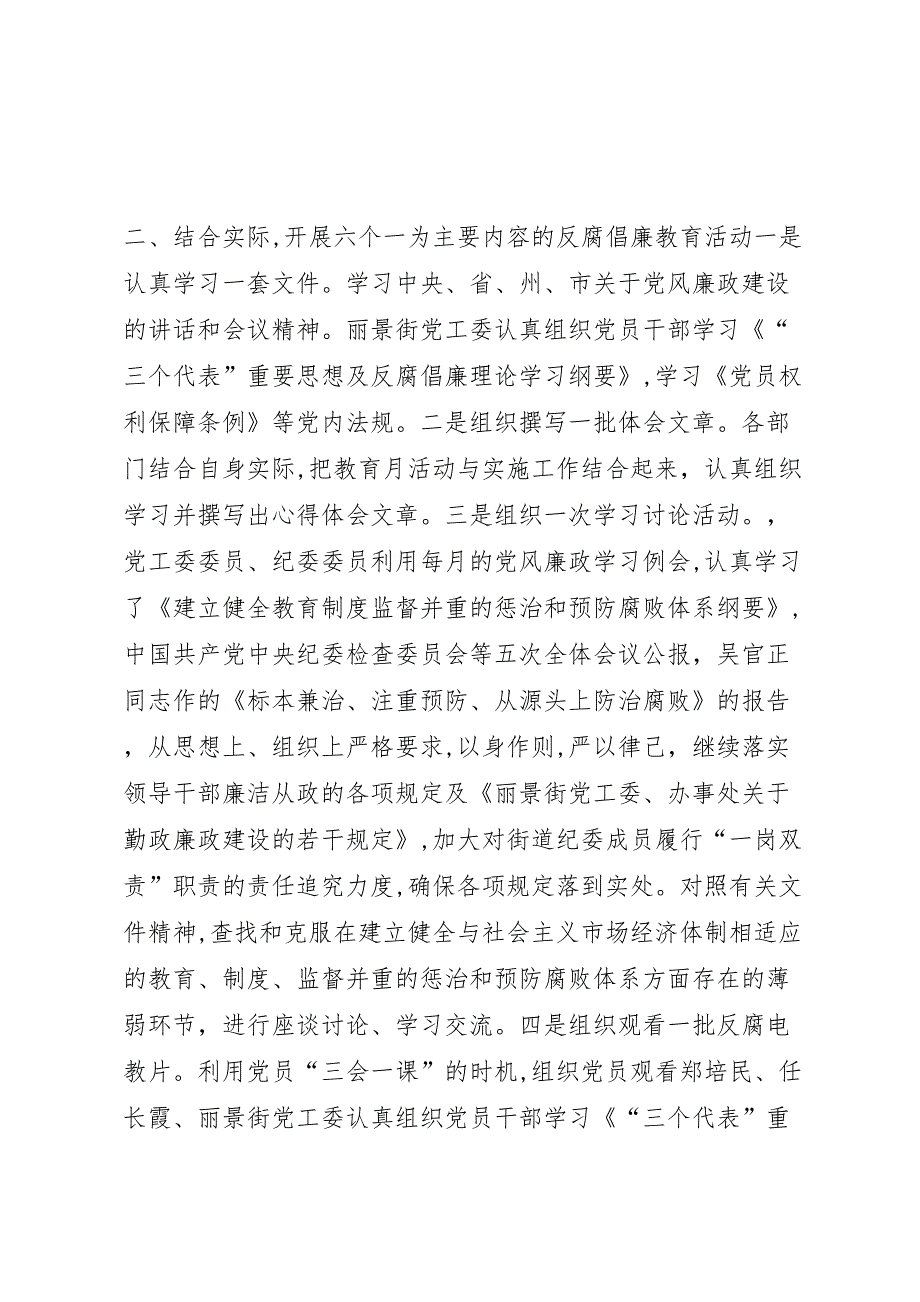 二、结合实际,开展六个一为主要内容的反腐倡廉教育活动一是
认真学习一套文件。学习中央、省、州、市关于党风廉政建设
的讲话和会议精神。丽景街党工委认真组织党员干部学习《“
三个代表”重要思想及反腐倡廉理论学习纲要》,学习《党员权
利保障条例》等党内法规。二是组织撰写一批体会文章。各部
门结合自身实际,把教育月活动与实施工作结合起来，认真组织
学习并撰写出心得体会文章。三是组织一次学习讨论活动。，
党工委委员、纪委委员利用每月的党风廉政学习例会,认真学习
了《建立健全教育制度监督并重的惩治和预防腐败体系纲要》,
中国共产党中央纪委检查委员会等五次全体会议公报，吴官正
同志作的《标本兼治、注重预防、从源头上防治腐败》的报告
，从思想上、组织上严格要求,以身作则,严以律己，继续落实
领导干部廉洁从政的各项规定及《丽景街党工委、办事处关于
勤政廉政建设的若干规定》,加大对街道纪委成员履行“一岗双
责”职责的责任追究力度,确保各项规定落到实处。对照有关文
件精神,查找和克服在建立健全与社会主义市场经济体制相适应
的教育、制度、监督并重的惩治和预防腐败体系方面存在的薄
弱环节，进行座谈讨论、学习交流。四是组织观看一批反腐电
教片。利用党员“三会一课”的时机,组织党员观看郑培民、任
长霞、丽景街党工委认真组织党员干部学习《“三个代表”重